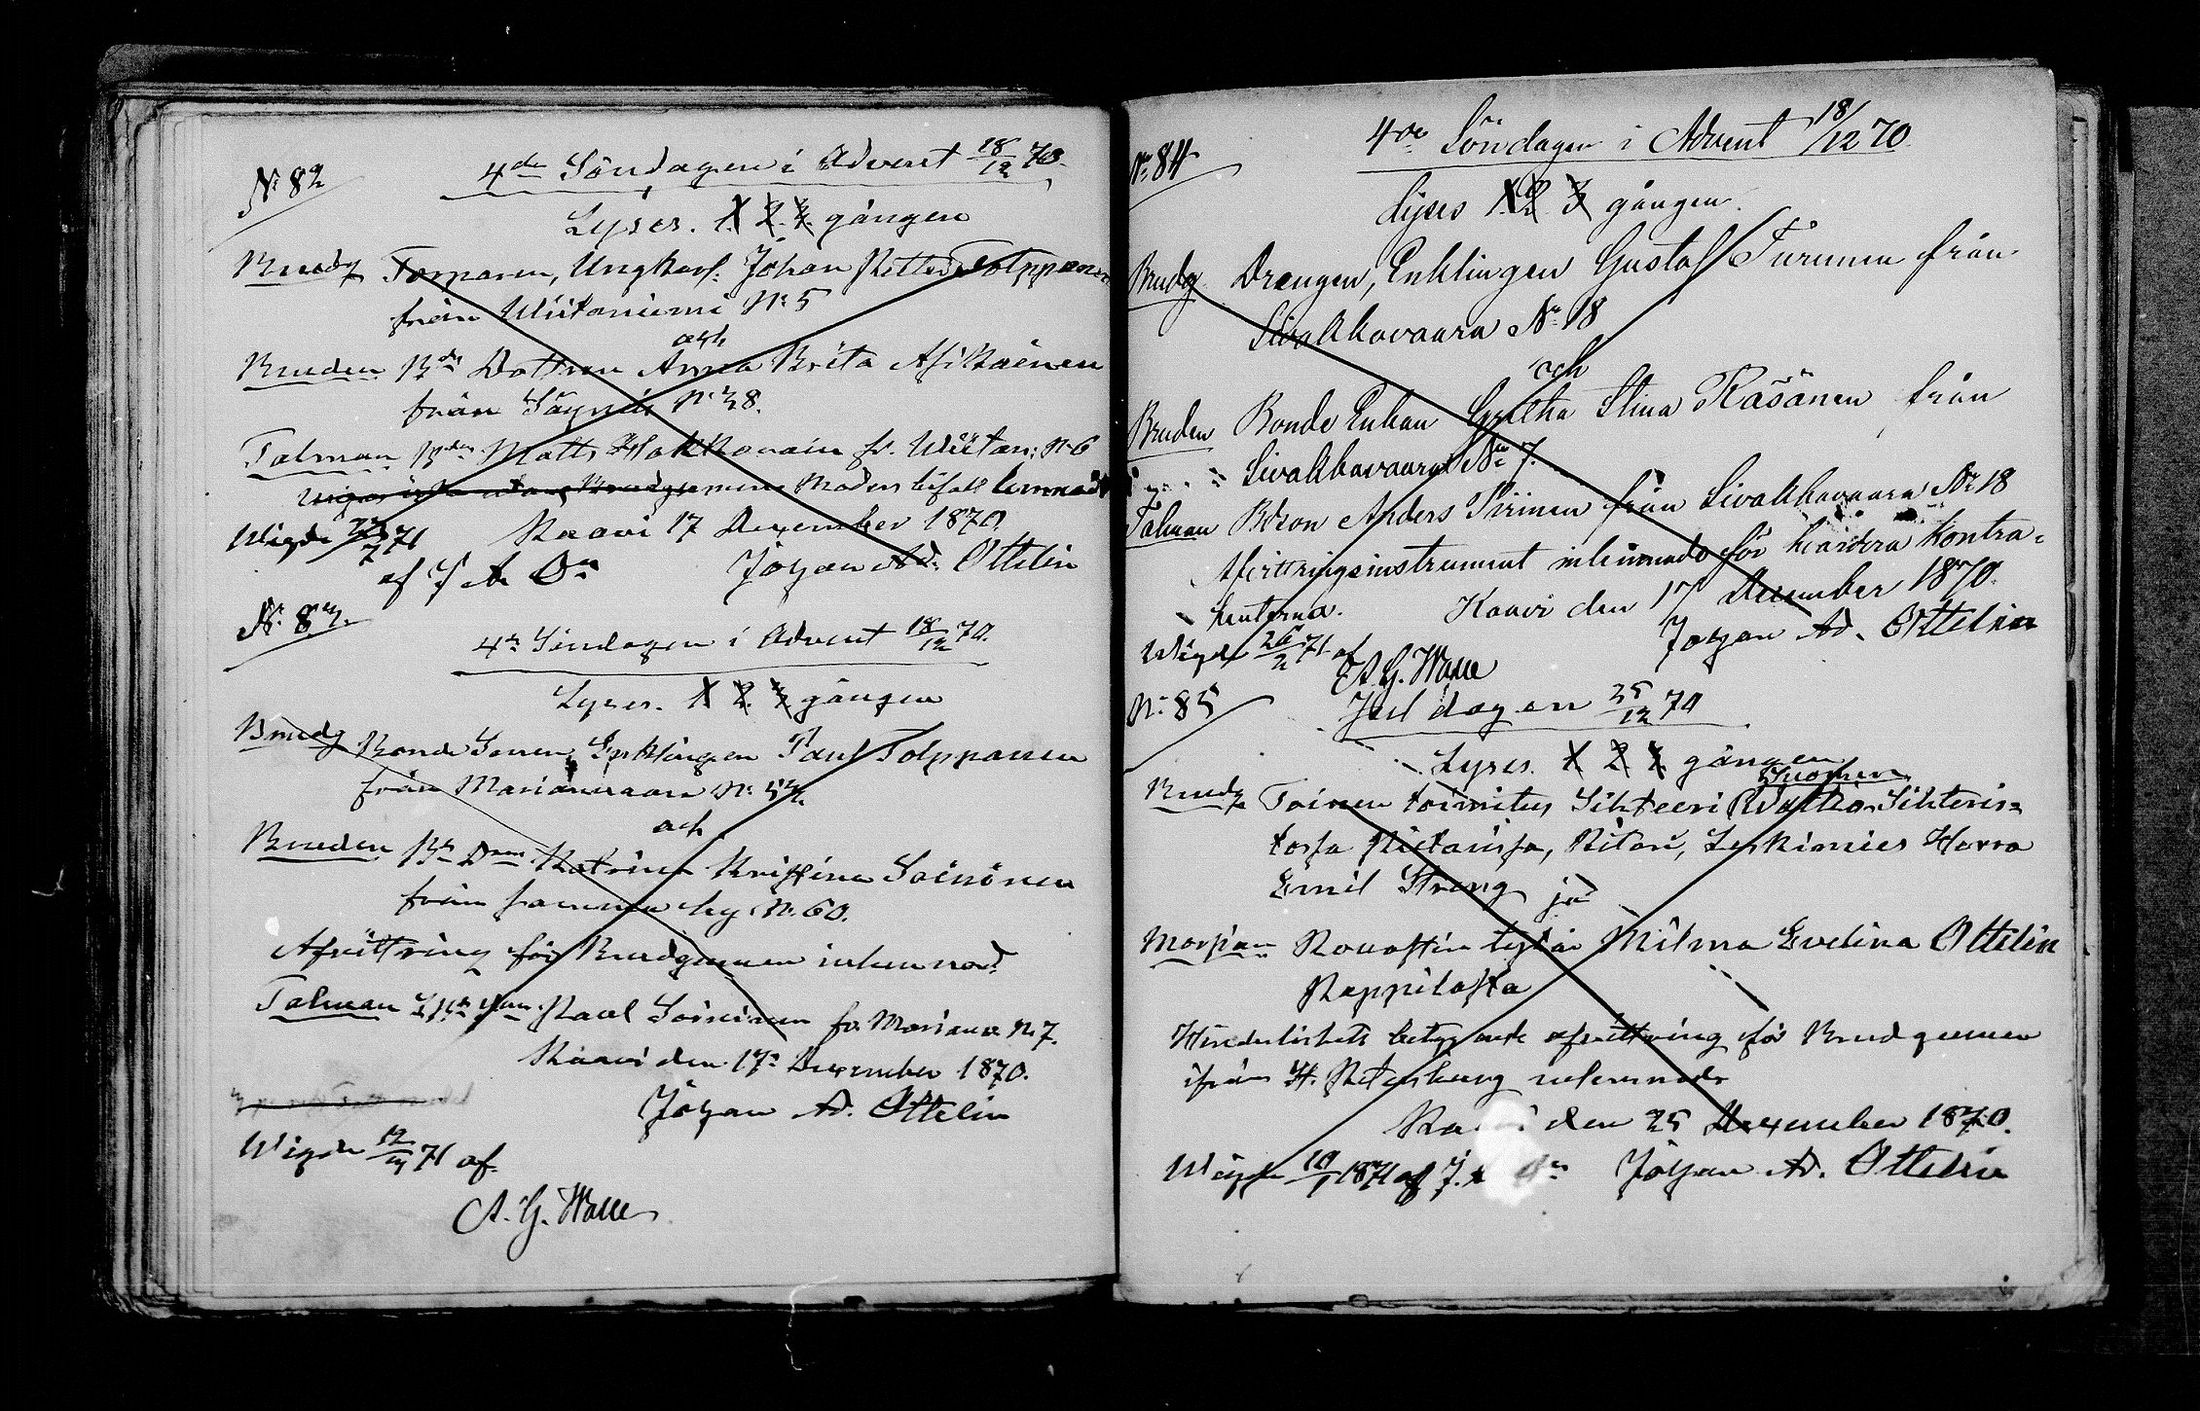 N:o 82
4de Söndagen i Advent 18/12 70.
Lyses. 1. 2. 3. gången
Brudg Torparen, Ungkarl. Johan Petter Tolppanen
från Wiitaniemi N:o 5
och
Bruden Bde Dottren Anna Brita Asikainen
från Säyneis N:o 38.
Talman Bden Matts Hakkarain fr. Wiitan: N:o 6
Brudgummens Moders bifall lemnadt
Wigde 71 Kaavi 17 December 1870.
af J A On Johan Ad. Ottelin
N:o 83.
4de Söndagen i Advent 18/12 70.
Lyses. 1 2 3 gången
Brudg Bonde Sonen, Enklingen Paul Tolppanen
från Marianvaara N:o
och
Bruden Bde Dren Katrina Kristina Soininen
från samma by N:o 60.
Afvittring för Brudgummen inlemnad.
Talman Paul Soininen fr Marianv N:o 7.
Kaavi den 17de December 1870.
Johan Ad. Ottelin
Wigde 71 af
A. G. Walle
N:o 84
4de Söndagen i Advent 18/12 70
Lyses 1. 2. 3 gången.
Brudg Drengen, Enklingen Gustaf Turunen från
Sivakkavaara No 18
och
Bruden Bonde Enkan Gretha Stina Räsänen från
Sivakkavaara No 7.
Talman Bdeson Anders Piirinen från Sivakkavaara No 18
Afvittringsinstrument inlemnade för bärdera Kontra=
henterna. Kaavi den 17 December 1870.
Johan Ad. Ottelin
Wigde 26/2 71 af
A. G. Walle
N:o 85
Juldagen 25/12 70
Lyses. 1 2 3 gången
Brudg Toinen toimitus Sihteeri Suomen Waltio Sihteris=
tossa Pietarissa, Ritari, Leskimies Herra
Emil Streng ja
Morsian Rovastin tytär Hilma Evelina Ottelin
Pappilasta
Hinderlöshets betyg ock afvittring för Brudgummen
ifrån St. Petersburg inlemnade
Kaavi den 25 December 1870.
Wigde 10/1 1871 af J. A On Johan Ad. Ottelin